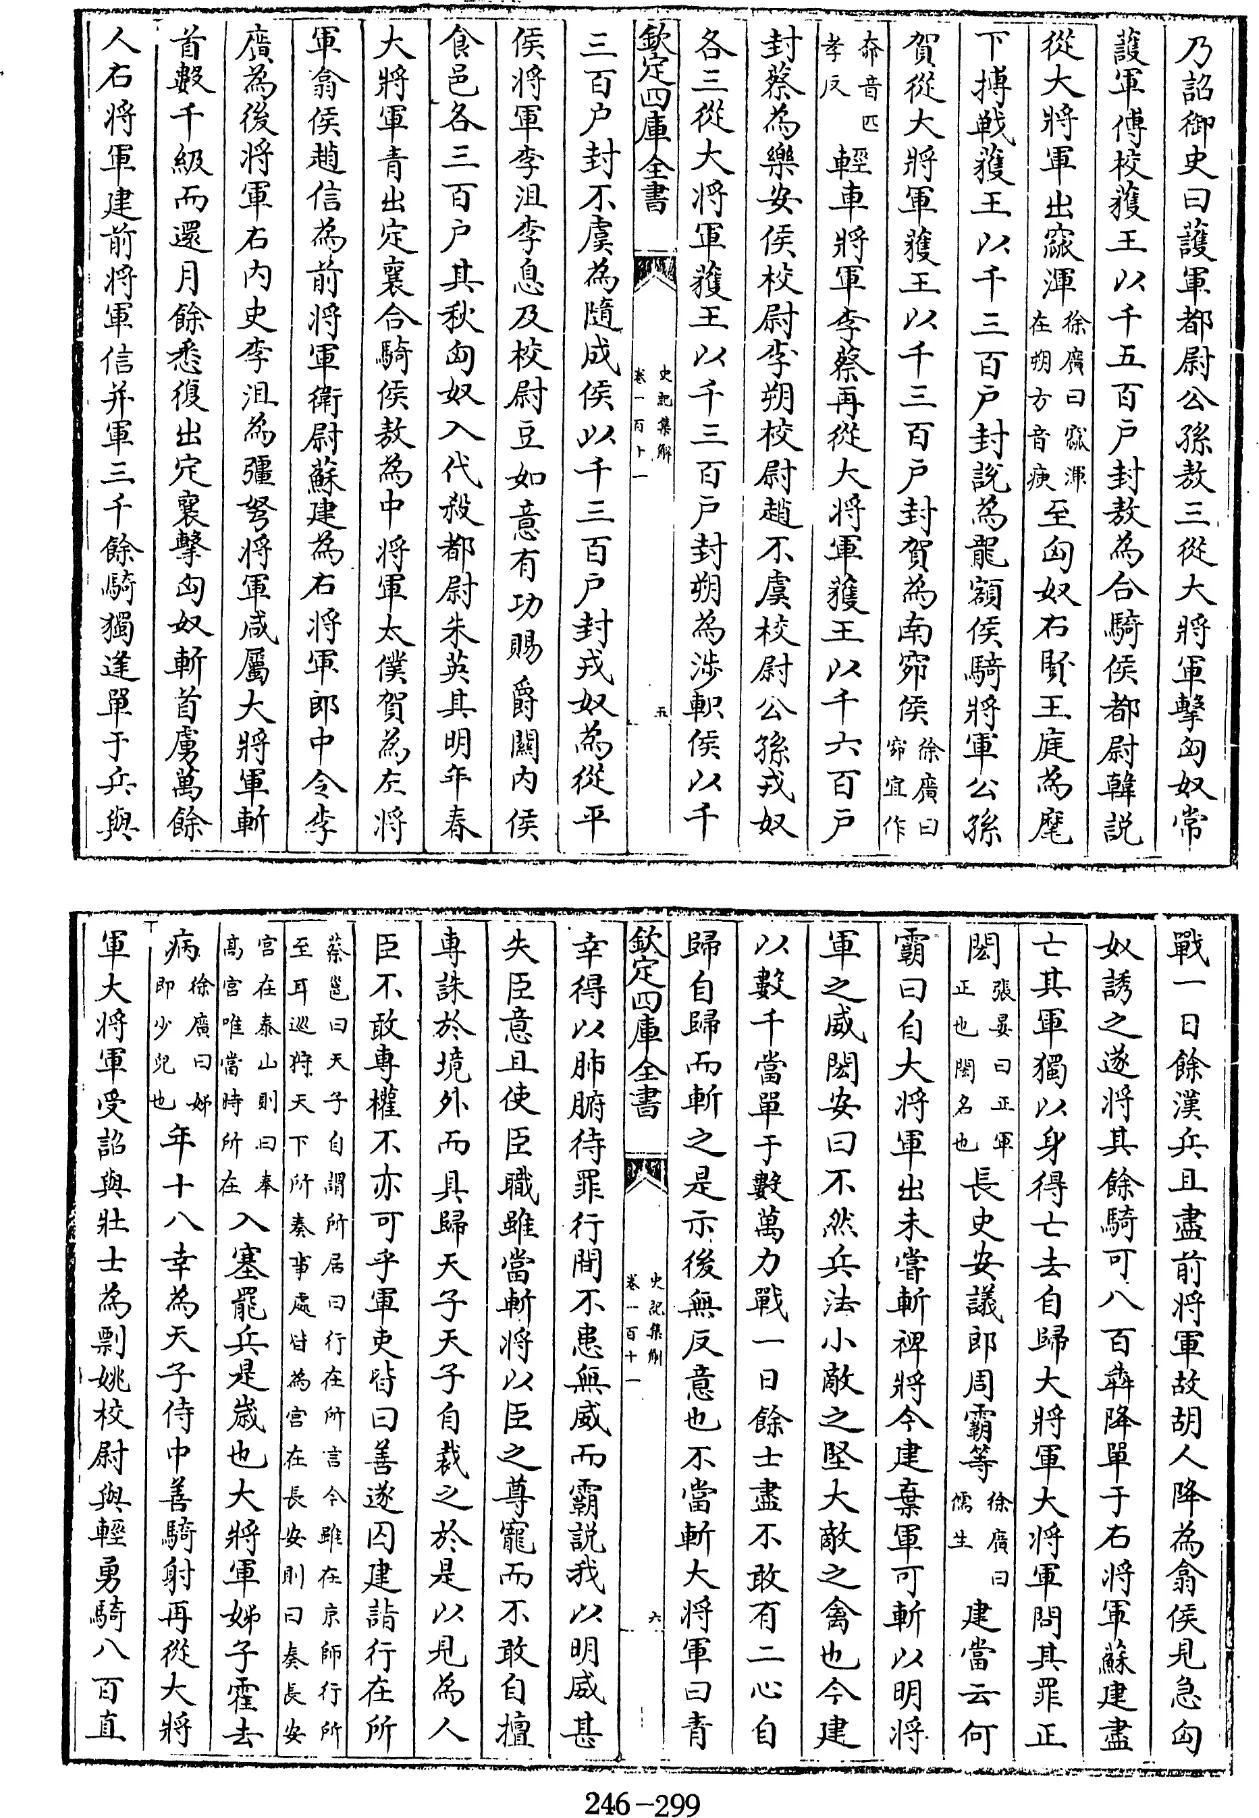 乃詔御史曰護軍都尉公孫敖三從大將軍擊匈奴常
護軍傅校獲王以千五百户封敖為合騎侯都尉韓説
從大將軍出窳渾徐廣曰窳渾在朔方音庾至匈奴右賢王庭為麾
下搏戰獲王以千三百户封説為龍頟侯騎將軍公孫
賀從大將軍獲王以千三百户封賀為南窌侯徐廣曰窌宜作
奅音匹孝反輕車將軍李蔡再從大將軍獲王以千六百户
封蔡為樂安侯校尉李朔校尉趙不虞校尉公孫戎奴
各三從大將軍獲王以千三百户封朔為涉軹侯以千
欽定四庫全書
史記集解
卷一百十一
五
三百户封不虞為隨成侯以千三百户封戎奴為從平
侯將軍李沮李息及校尉豆如意有功賜爵關内侯
食邑各三百户其秋匈奴入代殺都尉朱英其明年春
大將軍青出定襄合騎侯敖為中將軍太僕賀為左將
軍翕侯趙信為前將軍衛尉蘇建為右將軍郎中令李
廣為後將軍右内史李沮為彊弩將軍咸屬大將軍斬
首數千級而還月餘悉復出定襄擊匈奴斬首虜萬餘
人右將軍建前將軍信并軍三千餘騎獨逢單于兵與
戰一日餘漢兵且盡前將軍故胡人降為翕侯見急匈
奴誘之遂將其餘騎可八百犇降單于右將軍蘇建盡
亡其軍獨以身得亡去自歸大將軍大將軍問其罪正
閎張晏曰正軍正也閎名也長史安議郎周霸等徐廣曰儒生建當云何
霸曰自大將軍出未嘗斬裨將今建棄軍可斬以明將
軍之威閎安曰不然兵法小敵之堅大敵之禽也今建
以數千當單于數萬力戰一日餘士盡不敢有二心自
歸自歸而斬之是示後無反意也不當斬大將軍曰青
欽定四庫全書
史記集解
卷一百十一
六
幸得以肺腑待罪行間不患無威而霸説我以明威甚
失臣意且使臣職雖當斬將以臣之尊寵而不敢自擅
専誅於境外而具歸天子天子自裁之於是以見為人
臣不敢専權不亦可乎軍吏皆曰善遂囚建詣行在所
蔡邕曰天子自謂所居曰行在所言今雖在京師行所至耳巡狩天下所奏事處皆為宫在長安則曰奏長安
宫在泰山則曰奉髙宫唯當時所在入塞罷兵是歳也大將軍姊子霍去
病徐廣曰姊即少兒也年十八幸為天子侍中善騎射再從大將
軍大將軍受詔與壯士為剽姚校尉與輕勇騎八百直
246-299